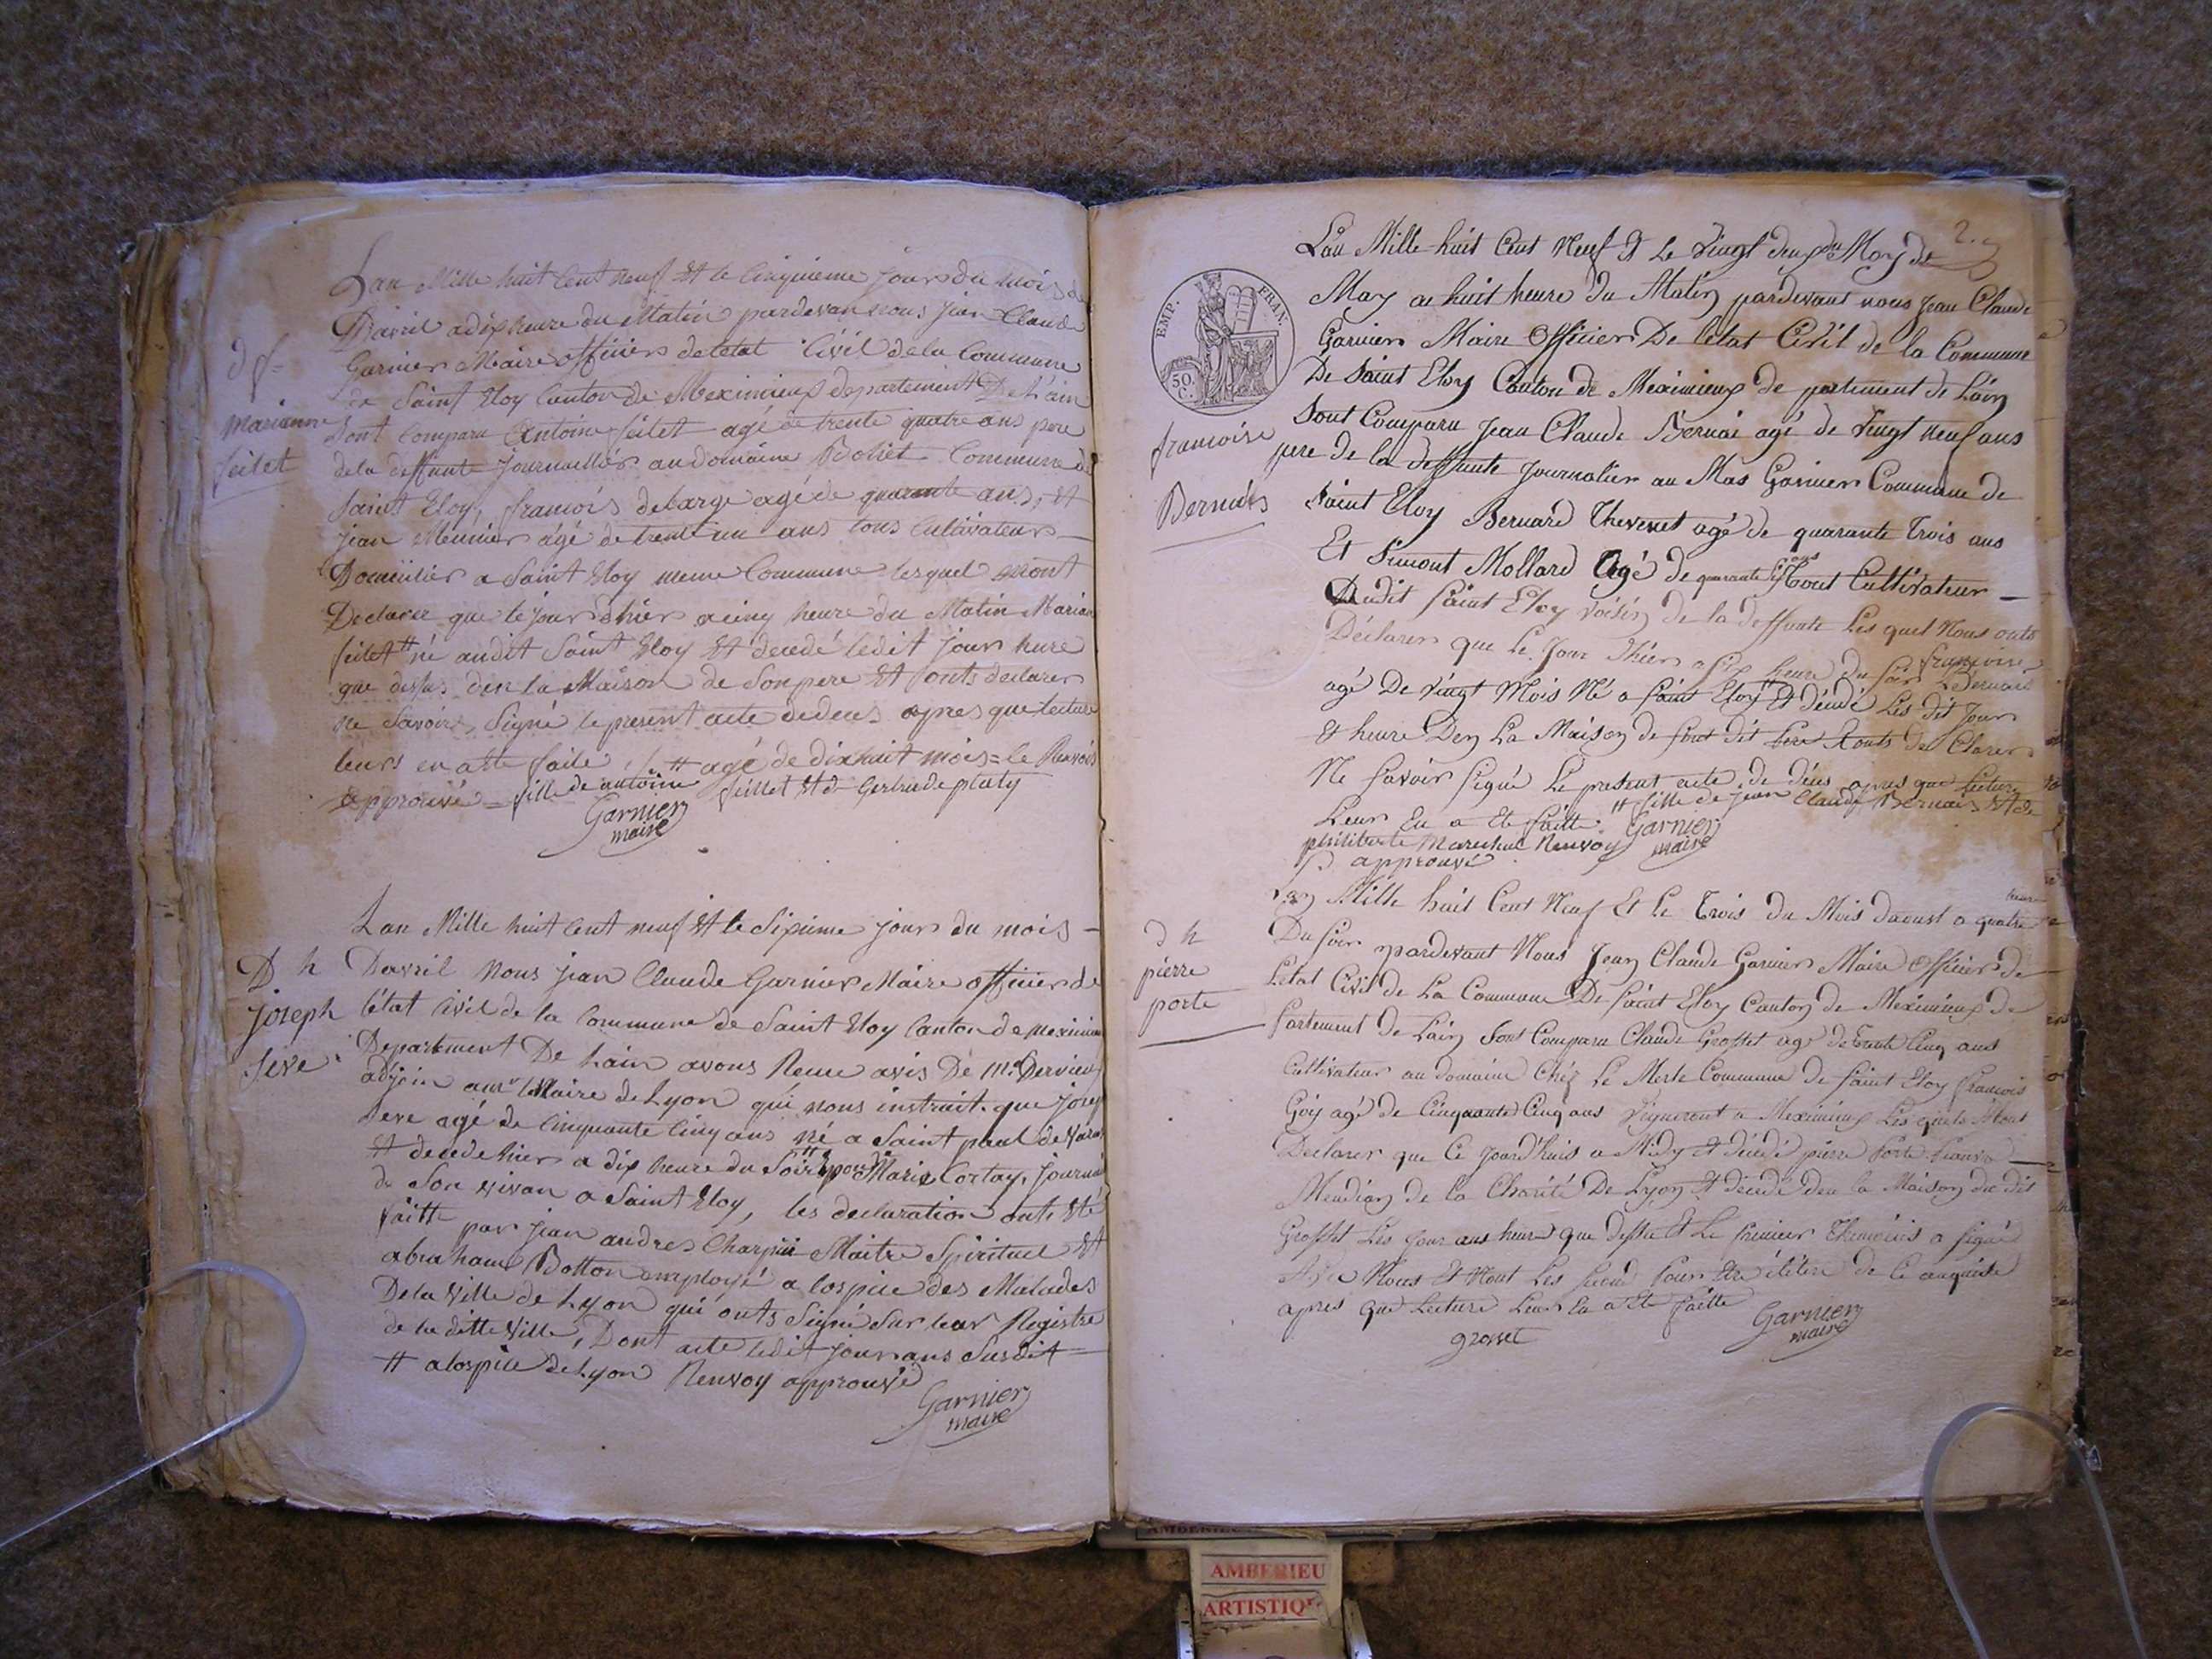 d f=
marianne
feilet
Lan Mille huit Cent neuf Et le Cinquieme jour du mois de
Davril a dix heure du Matin pardevan nous jean Claude
Garnier Maire officier de letat Civil de la Commune
de Saint Eloy Canton de Meximieux departement De Lain
Sont Comparu Antoine feilet agé de trente quatre ans pere
de la deffunte journaillier au domaine Commune de
Saint Eloy, francois debarge agé de quarante ans, Et
jean Meunier agé de trent un ans tous Cultivateur
Domicilier a Saint Eloy meme Commune lesquel mont
Declarer que le jour dhier a cinq heure du Matin Marian
feilet # né au dit Saint Eloy Et decedé ledit jour heure
que dessus den la Maison de Son pere Et onts declarer
ne Savoir Signé le present acte dedeus apres que lecture
leurs en a ete faite # agé de dix huit mois = le Renvois
approuvé = fille de antoine feillet Et d Gertrude
Garnier
maire
D h
joseph
Seve
Lan Mille huit Cent neuf Et le Sixieme jour du mois
Davril Nous jean Claude Garnier Maire officier de
létat Civil de la Commune de Saint Eloy Canton de Meximieux
Departement De Lain avons Recue avis De Mr. Dervieu
adjoin a mr le Maire de Lyon qui nous instruit que josep
Seve agé de Cinquante Cinq ans né a Saint paul de Varax
Et decede hier a dix heure du Soir # Marie Cortay, journa
de Son vivan a Saint Eloy, les declaration onts Eté
faitte par jean andres Maitre Spirituel Et
abraham Botton employé a lospice des Malades
De la Ville de Lyon qui onts Signé Sur leur Registre
de la ditte Ville, Dont acte ledit jour ans Susdit
# a lospice de Lyon Renvoy approuvé
Garnier
maire
2.
EMP. FRAN.
50. C.
francoise
Bernais
Lan Mille huit Cent Neuf Et Le Vingt deux du Moy de
May a huit heure du Matin pardevant nous Jean Claude
Garnier Maire Officier De letat Civil de la Commune
De Saint Eloy Canton de Meximieux de partement de Lain
Sont Comparu Jean Claude Bernai agé de Vingt neuf ans
pere De la deffunte journalier au Mas Garnier Commune de
Saint Eloy Bernard Thevenet agé de quarante trois ans
Et Simont Mollard Agé de quarante ans tout Cultivateur
Dudit Saint Eloy voisin de la deffunte Les quel Nous onts
Déclarer que Le Jour Dhier a Six heure Du Soir francoise Bernais
agé De vingt Mois Né a Saint Eloy Et décédé Les dit Jour
Et heure Den La Maison de Sont dit pere Et onts De Clarer
Ne Savoir Signé Le present acte de deus apres que lecture
Leur En a Ete faitte # fille de jean Claude Bernais Et de
philiberte Marechal Renvoy Garnier
approuvé maire
d h
pierre
porte
Lan Mille huit Cent Neuf Et Le Trois du Mois daoust a quatre heure
Du Soir pardevant Nous Jean Claude Garnier Maire Officier de
Letat Civil de La Commune De Saint Eloy Canton de Meximieux de
partement De Lain Sont Comparu Claude Grosset agé de trente Cinq ans
Cultivateur au domaine Chez Le Merle Commune de Saint Eloy francois
Goy agé de Cinquante Cinq ans Vigneront a Meximieux Les quels Mont
Declarer que Ce jourd'huis a Midy Et décédé pierre porte
de la Charité De Lyon Et décédé den la Maison du dit
Grosset Les jour ans heure que dessus Et Le premier a signé
Avec Nous Et Nont Les Second pour Etre ilétére de Ce
apres que Lecture Leur En a Ete faitte
grosset
Garnier
maire
AMBERIEU
ARTISTIQ